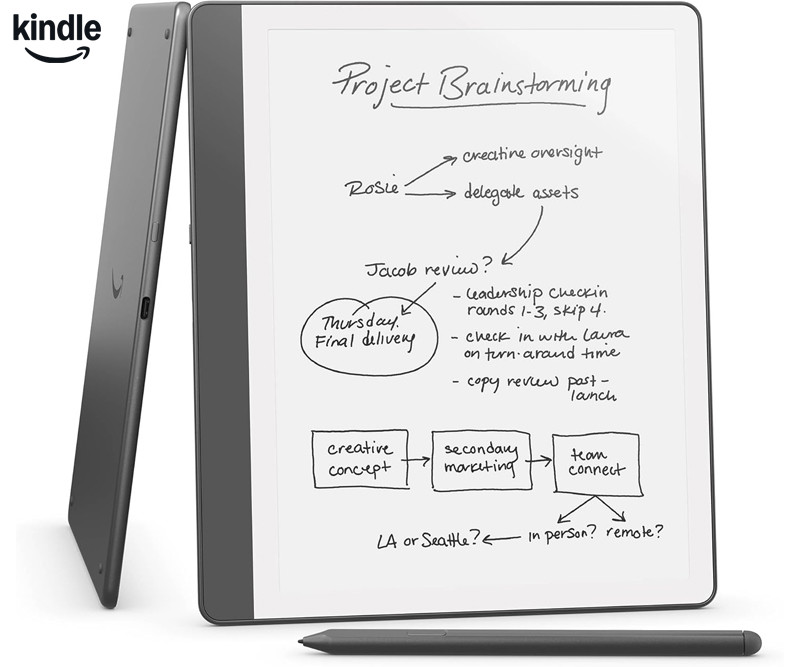 kindle
Project Brainstorming
creative oversight
Rosie
delegate assets
Jacob review?
Thursday.
Final delivery
- leadership checkin
rounds 1-3, skip 4.
- check in with Laura
on turn-around time
- copy review post-
launch
creative
concept
secondary
marketing
team
connect
LA or Seattle?
in person?
remote?